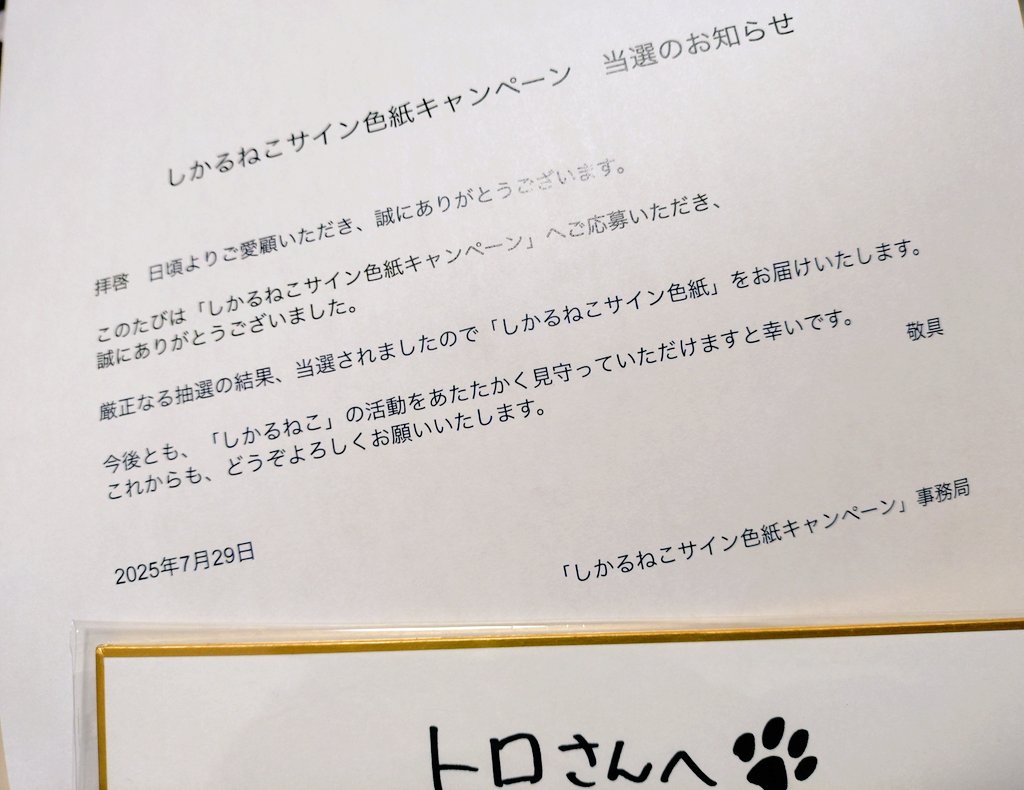 しかるねこサイン色紙キャンペーン　当選のお知らせ
拝啓　日頃よりご愛顧いただき、誠にありがとうございます。
このたびは「しかるねこサイン色紙キャンペーン」へご応募いただき、
誠にありがとうございました。
厳正なる抽選の結果、当選されましたので「しかるねこサイン色紙」をお届けいたします。
今後とも、「しかるねこ」の活動をあたたかく見守っていただけますと幸いです。
これからも、どうぞよろしくお願いいたします。
敬具
2025年7月29日
「しかるねこサイン色紙キャンペーン」事務局
トロさんへ